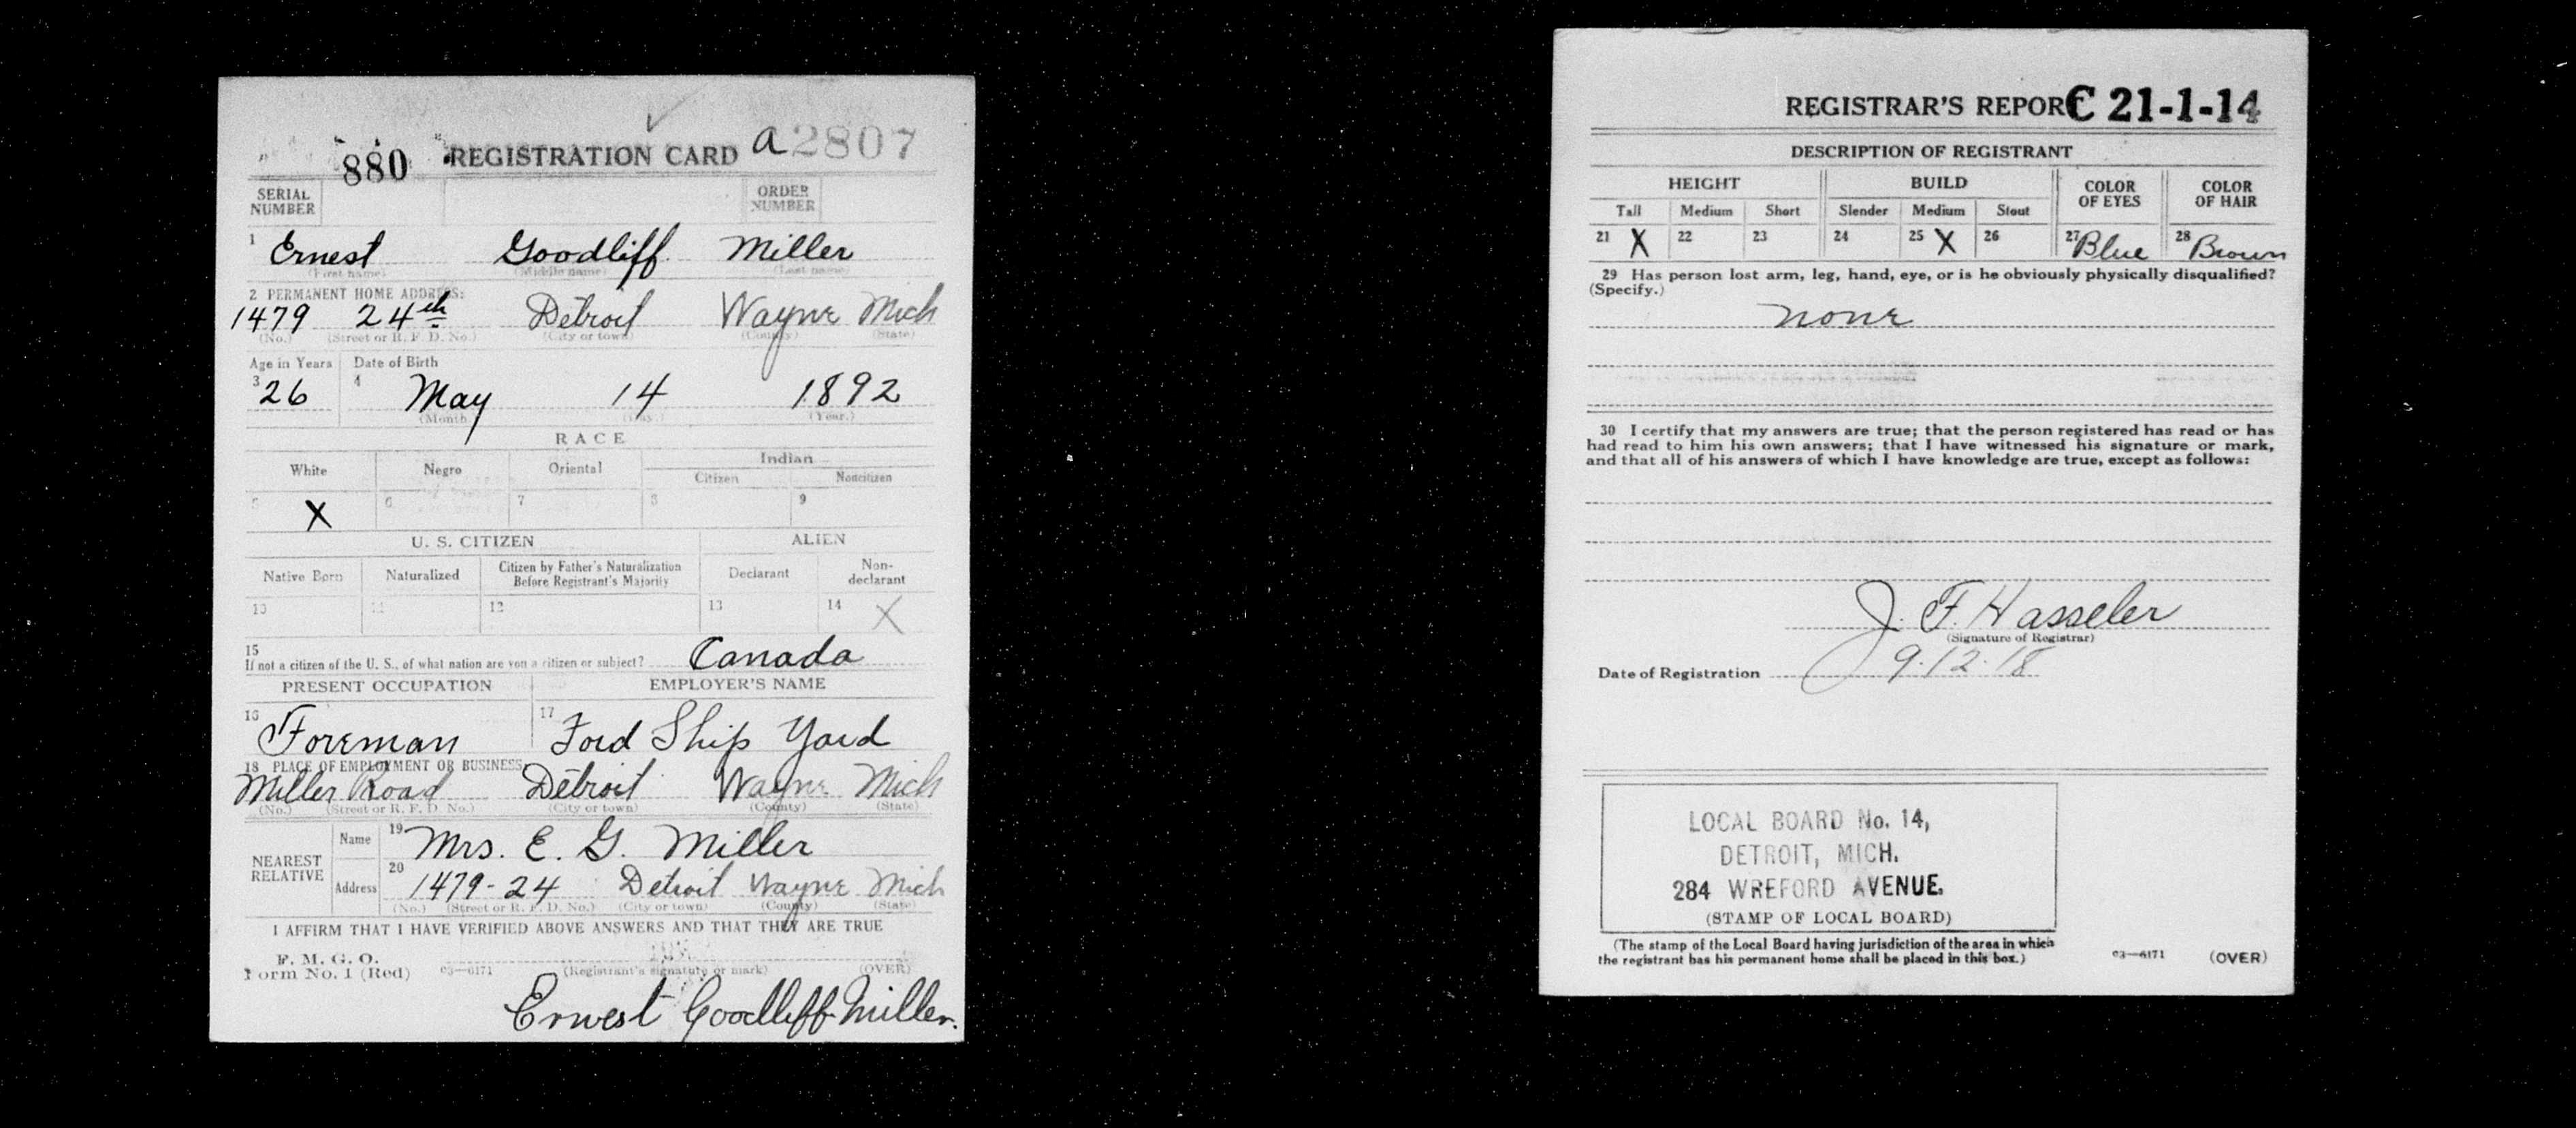 880 REGISTRATION CARD a 2807
SERIAL NUMBER
ORDER NUMBER
1 Ernest Goodliff Miller
(First name) (Middle name) (Last name)
2 PERMANENT HOME ADDRESS:
1479 24th Detroit Wayne Mich
(No.) (Street or R. F. D. No.) (City or town) (County) (State)
Age in Years Date of Birth
3 26 4 May 14 1892
(Month) (Day.) (Year.)
RACE
White Negro Oriental Indian
Citizen Noncitizen
5 X 6 7 8 9
U. S. CITIZEN ALIEN
Native Born Naturalized Citizen by Father's Naturalization Before Registrant's Majority Declarant Non-declarant
10 11 12 13 14 X
15
If not a citizen of the U. S., of what nation are you a citizen or subject? Canada
PRESENT OCCUPATION EMPLOYER'S NAME
16 Foreman 17 Ford Ship Yard
18 PLACE OF EMPLOYMENT OR BUSINESS:
Miller Road Detroit Wayne Mich
(No.) (Street or R. F. D. No.) (City or town) (County) (State)
NEAREST RELATIVE
Name 19 Mrs. E. G. Miller
Address 20 1479-24 Detroit Wayne Mich
(No.) (Street or R. F. D. No.) (City or town) (County) (State)
I AFFIRM THAT I HAVE VERIFIED ABOVE ANSWERS AND THAT THEY ARE TRUE
P. M. G. O.
Form No. 1 (Red) 03—6171 (Registrant's signature or mark) (OVER)
Ernest Goodliff Miller.
REGISTRAR'S REPORT C 21-1-14
DESCRIPTION OF REGISTRANT
HEIGHT BUILD COLOR OF EYES COLOR OF HAIR
Tall Medium Short Slender Medium Stout
21 X 22 23 24 25 X 26 27 Blue 28 Brown
29 Has person lost arm, leg, hand, eye, or is he obviously physically disqualified?
(Specify.)
none
30 I certify that my answers are true; that the person registered has read or has
had read to him his own answers; that I have witnessed his signature or mark,
and that all of his answers of which I have knowledge are true, except as follows:
J. F. Hasseler
(Signature of Registrar)
Date of Registration 9.12.18
LOCAL BOARD No. 14,
DETROIT, MICH.
284 WREFORD AVENUE.
(STAMP OF LOCAL BOARD)
(The stamp of the Local Board having jurisdiction of the area in which
the registrant has his permanent home shall be placed in this box.)
03—6171 (OVER)